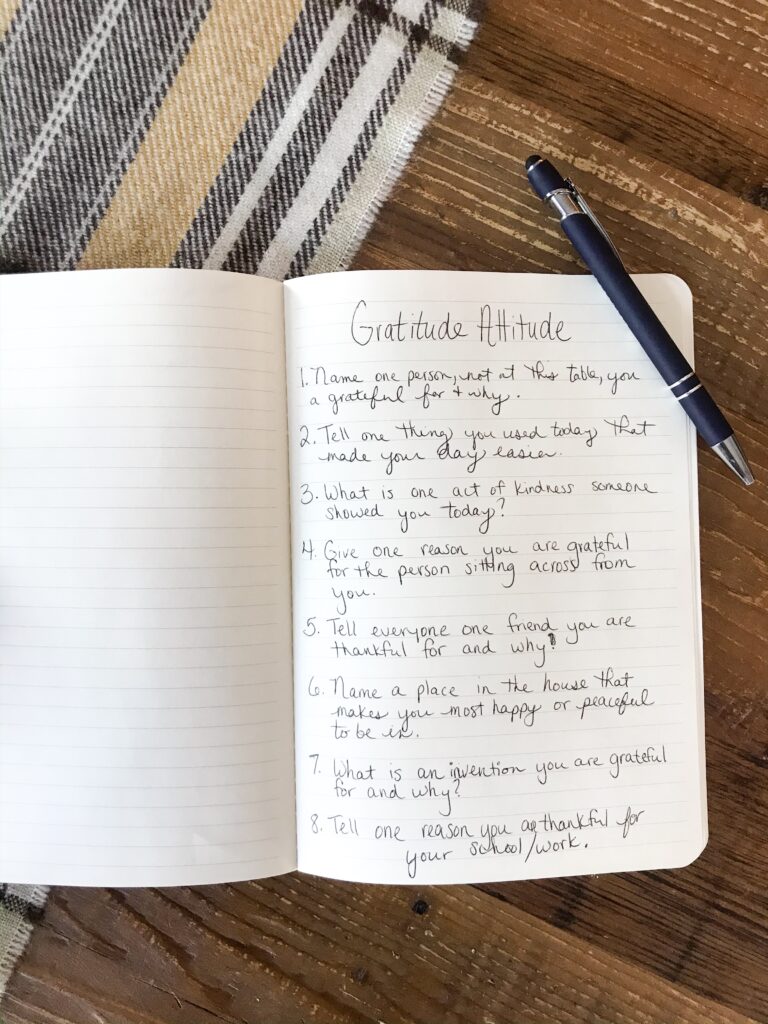 Gratitude Attitude
1. Name one person, not at this table, you
a grateful for + why.
2. Tell one thing you used today that
made your day easier.
3. What is one act of kindness someone
showed you today?
4. Give one reason you are grateful
for the person sitting across from
you.
5. Tell everyone one friend you are
thankful for and why?
6. Name a place in the house that
makes you most happy or peaceful
to be in.
7. What is an invention you are grateful
for and why?
8. Tell one reason you are thankful for
your school/work.